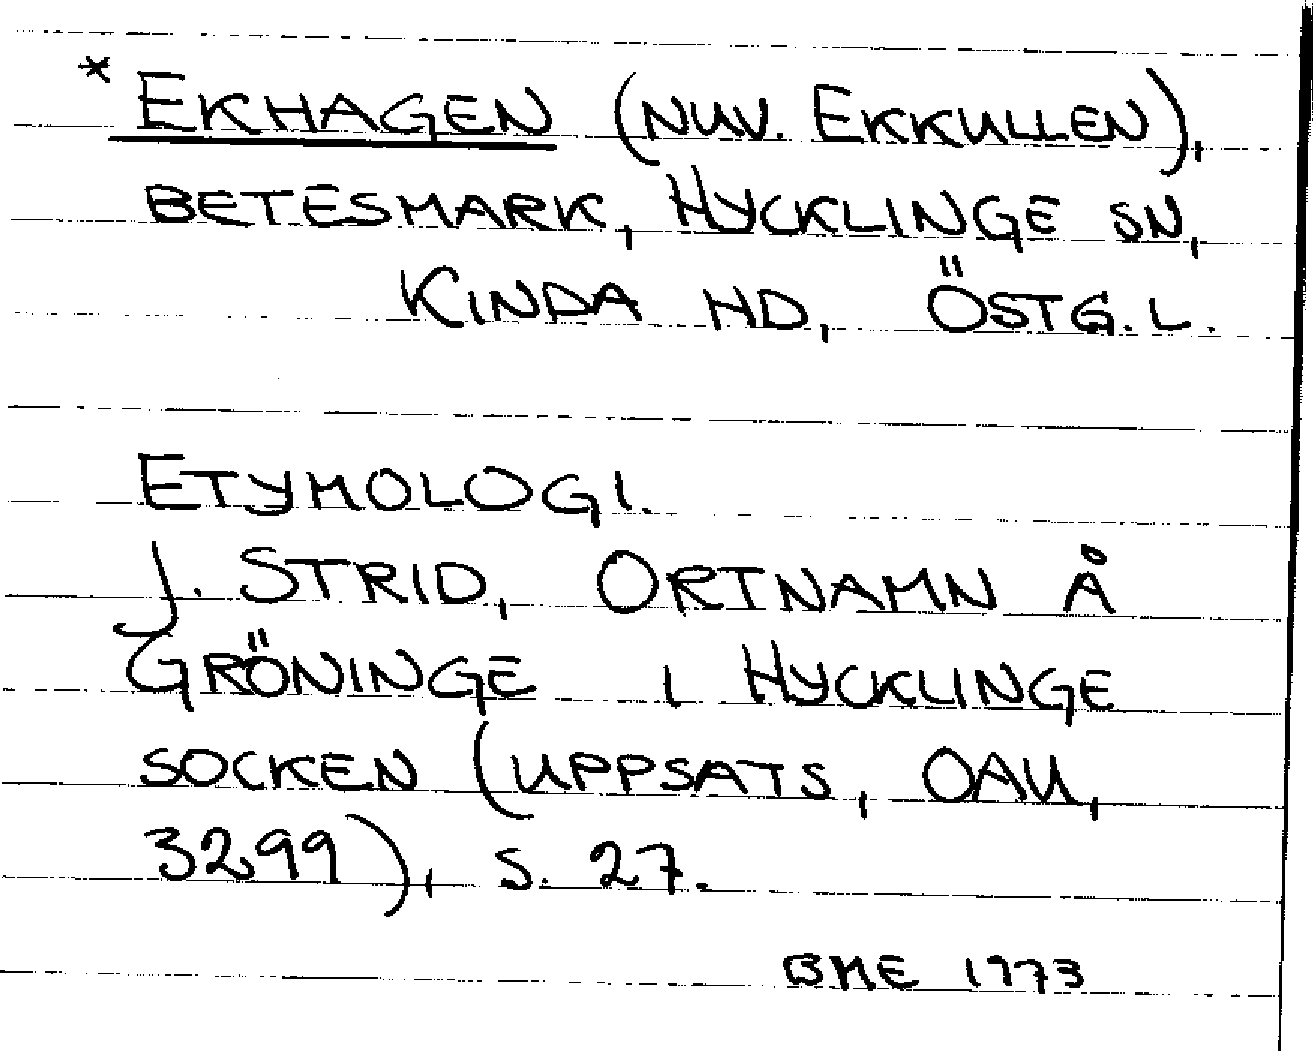 * EKHAGEN (NUV. EKKULLEN),
BETESMARK, HYCKLINGE SN,
KINDA HD, ÖSTG. L.
ETYMOLOGI.
J. STRID, ORTNAMN Å
GRÖNINGE I HYCKLINGE
SOCKEN (UPPSATS, OAU,
3299), S. 27.
BME 1973